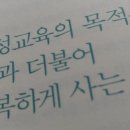 성교육의 목적
과 더불어
복하게 사는